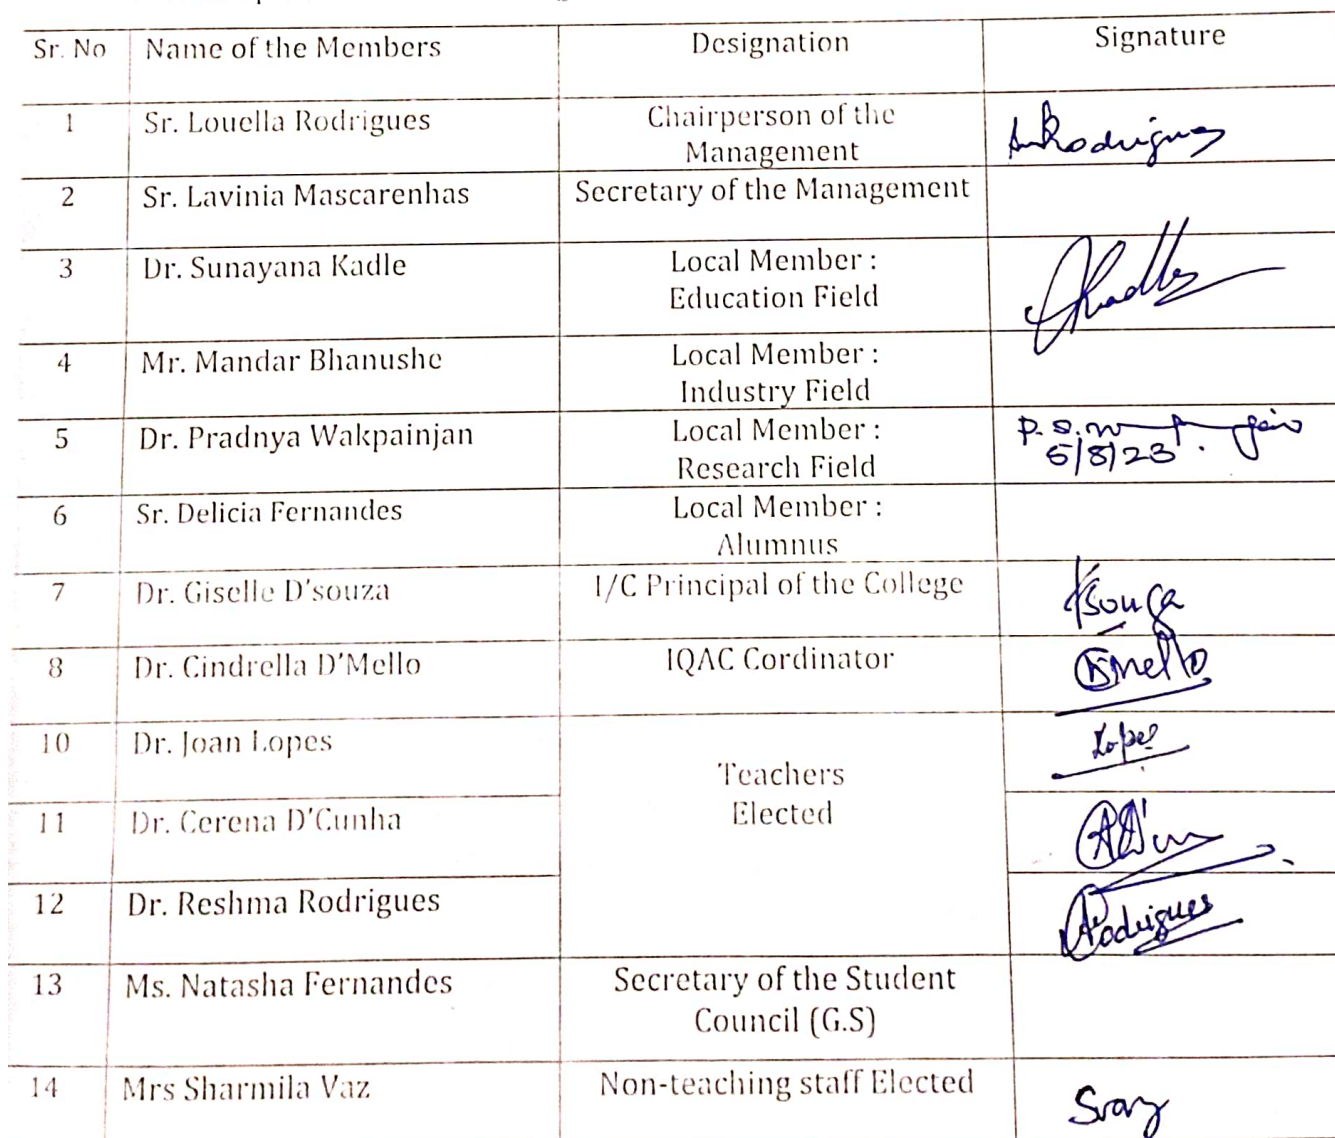 Sr. No Name of the Members Designation Signature
1 Sr. Louella Rodrigues Chairperson of the
Management
Rodrigues
2 Sr. Lavinia Mascarenhas Secretary of the Management
3 Dr. Sunayana Kadle Local Member :
Education Field
4 Mr. Mandar Bhanushe Local Member :
Industry Field
5 Dr. Pradnya Wakpainjan Local Member :
Research Field
P. S.
5/8/23
6 Sr. Delicia Fernandes Local Member :
Alumnus
7 Dr. Giselle D'souza I/C Principal of the College
8 Dr. Cindrella D'Mello IQAC Cordinator
10 Dr. Joan Lopes Lopes
Teachers
Elected
11 Dr. Cerena D'Cunha
12 Dr. Reshma Rodrigues Rodrigues
13 Ms. Natasha Fernandes Secretary of the Student
Council (G.S)
14 Mrs Sharmila Vaz Non-teaching staff Elected Svaz